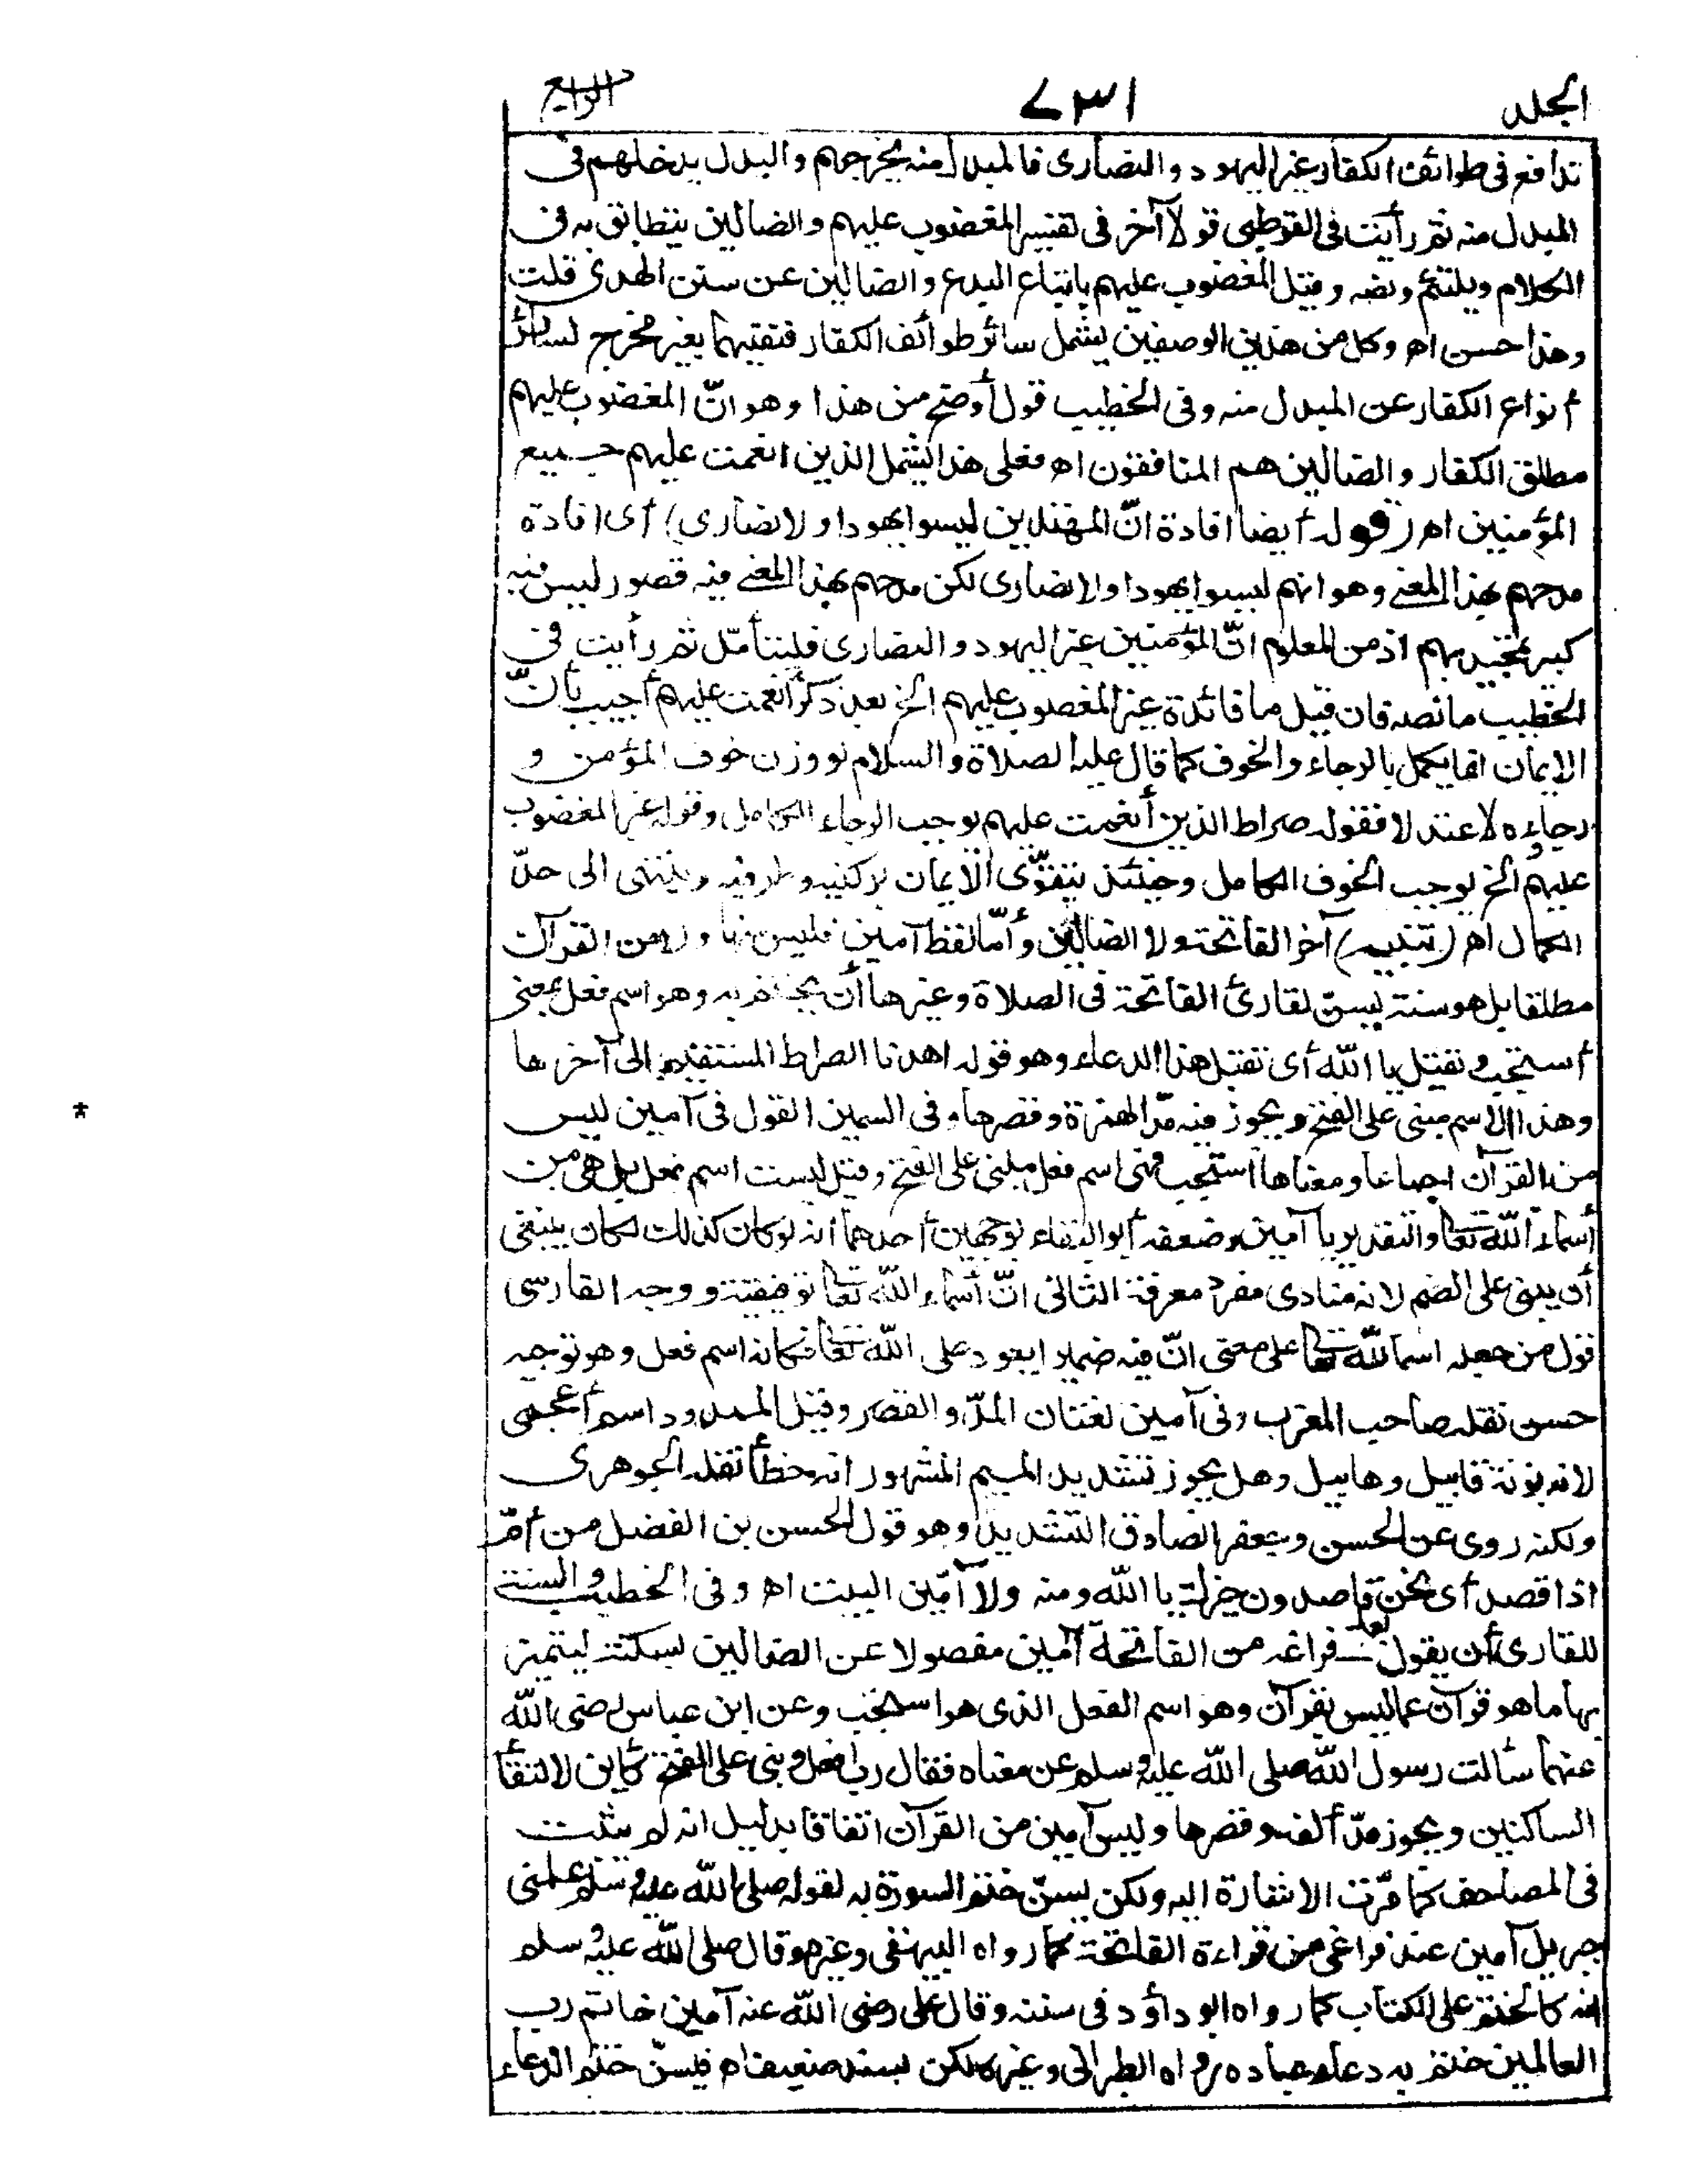 الجلد ٧٣١ الرابع
تدافع فى طوائف الكفار غير اليهود والنصارى فالمبدل منه يخرجهم والبدل يدخلهم فى
المبدل منه ثم رأيت فى القرطبى قولا آخر فى تفسير المغضوب عليهم والضالين يتطابق به فى
الكلام ويلتئم ونصه وقيل المغضوب عليهم باتباع البدع والضالين عن سنن الهدى قلت
وهذا حسن اه وكل من هذين الوصفين يشمل سائر طوائف الكفار فنفيهما بغير مخرج لسائر
أنواع الكفار عن المبدل منه وفى الخطيب قول أوضح من هذا وهو انّ المغضوب عليهم
مطلق الكفار والضالين هم المنافقون اه فعلى هذا يشمل الذين انعمت عليهم جميع
المؤمنين اه (قوله أيضا افادة انّ المهتدين ليسوا يهودا ولا نصارى) أى افادة
مدحهم بهذا المعنى وهو انهم ليسوا يهودا ولا نصارى لكن مدحهم بهذا المعنى فيه قصور ليس فيه
كبير تمجيد بهم اذ من المعلوم انّ المؤمنين غير اليهود والنصارى فليتأمّل ثم رأيت فى
الخطيب ما نصه فان قيل ما فائدة غير المغضوب عليهم الخ بعد ذكر أنعمت عليهم أجيب بأنّ
الايمان انما يكمل بالرجاء والخوف كما قال عليه الصلاة والسلام لو وزن خوف المؤمن و
رجاءه لاعتدلا فقوله صراط الذين أنعمت عليهم يوجب الرجاء الكامل وقوله غير المغضوب
عليهم الخ يوجب الخوف الكامل وحينئذ يتقوّى الايمان بركنيه وطرفيه وينتهى الى حدّ
الكمال اه (تنبيه) آخر الفاتحة ولا الضالين وأمّا لفظ آمين فليس منها ولا من القرآن
مطلقا بل هو سنة يسنّ لقارئ الفاتحة فى الصلاة وغيرها أن يختم به وهو اسم فعل بمعنى
أستجب وتقبّل يا الله أى تقبل هذا الدعاء وهو قوله اهدنا الصراط المستقيم الى آخرها
وهذا الاسم مبنى على الفتح ويجوز فيه مدّ الهمزة وقصرها وفى السمين القول فى آمين ليس
من القرآن اجماعا ومعناها أستجب فهى اسم فعل مبنى على الفتح وقيل ليست اسم فعل بل هى من
أسماء الله تعا والتقدير يا آمين وضعفه أبو البقاء بوجهين أحدهما انه لو كان كذلك لكان ينبغى
أن يبنى على الضم لانه منادى مفرد معرفة الثانى انّ أسماء الله تعا توقيفية ووجه الفارسى
قول من جعله اسما لله تعا على معنى انّ فيه ضميرا يعود على الله تعا فكانه اسم فعل وهو توجيه
حسن نقله صاحب المغرب وفى آمين لغتان المدّ والقصر وقيل الممدود اسم أعجمى
لانه بزنة قابيل وهابيل وهل يجوز تشديد الميم المشهور انه خطأ نقله الجوهرى
ولكنه روى عن الحسن وجعفر الصادق التشديد وهو قول الحسن بن الفضل من أمّ
اذا قصد أى نحن قاصدون خيرك يا الله ومنه ولا آمّين البيت اه وفى الخطيب والسنة
للقارى أن يقول بعد فراغه من الفاتحة آمين مفصولا عن الضالين بسكتة ليتميز
بها ما هو قرآن عما ليس بقرآن وهو اسم الفعل الذى هو استجب وعن ابن عباس رضى الله
عنهما سألت رسول الله صلى الله عليه وسلم عن معناه فقال رب افعل وبنى على الفتح كأين لالتقأ
الساكنين ويجوز مدّ ألفه وقصرها وليس آمين من القرآن اتفاقا بدليل انه لم يثبت
فى المصاحف كما مرّت الاشارة اليه ولكن يسنّ ختم السورة به لقوله صلى الله عليه وسلم علمنى
جبريل آمين عند فراغى من قراءة الفاتحة كما رواه البيهقى وغيره وقال صلى الله عليه وسلم
انه كالختم على الكتاب كما رواه ابو داؤد فى سننه وقال على رضى الله عنه آمين خاتم رب
العالمين ختم به دعاء عباده رواه الطبرانى وغيره لكن بسند ضعيف اه فيسنّ ختم الدعاء
*